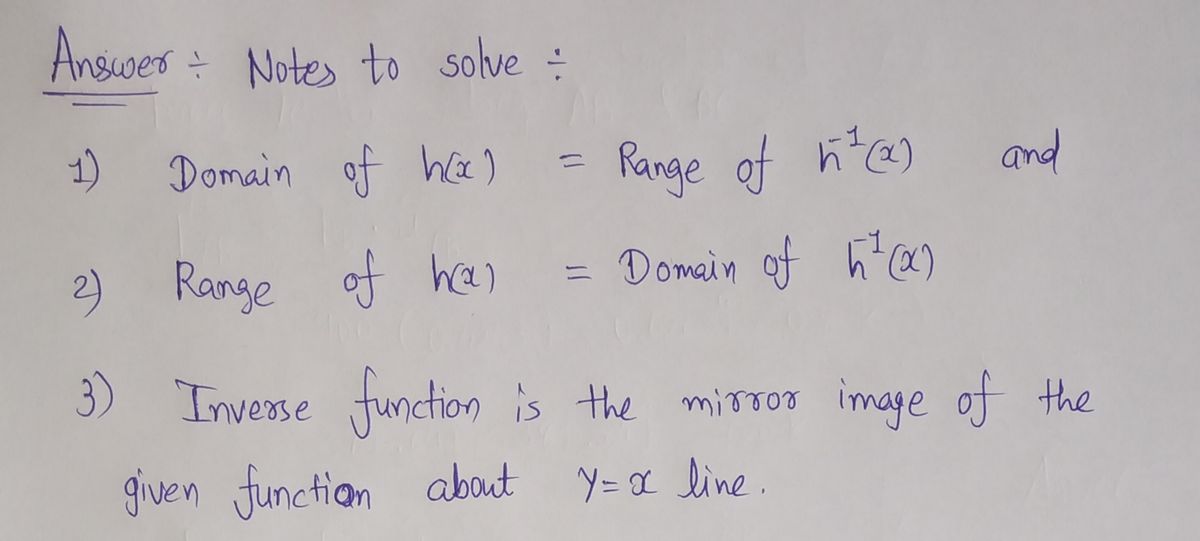 Answer ÷ Notes to solve ÷
1) Domain of h(x) = Range of h⁻¹(x) and
2) Range of h(x) = Domain of h⁻¹(x)
3) Inverse function is the mirror image of the
given function about y=x line.